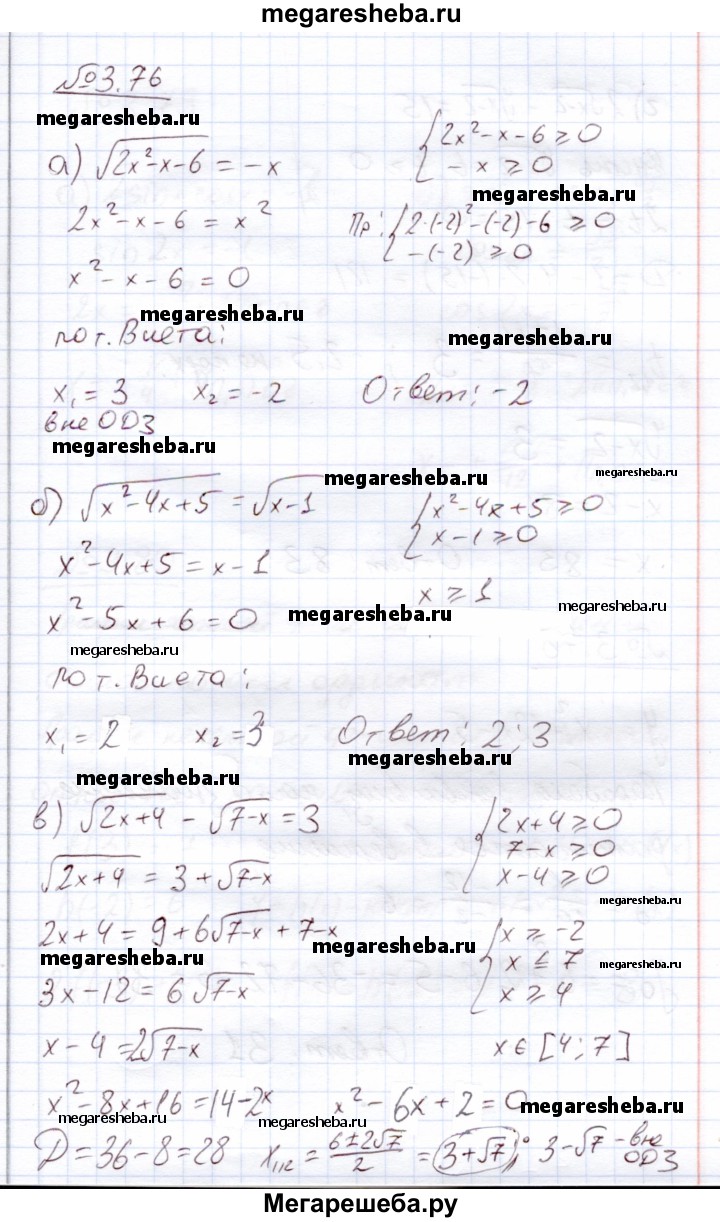 megaresheba.ru
№3.76
megaresheba.ru
а) √(2x²-x-6) = -x { 2x²-x-6 ≥ 0
-x ≥ 0
megaresheba.ru
2x²-x-6 = x² Пр: { 2·(-2)²-(-2)-6 ≥ 0
-(-2) ≥ 0
x²-x-6 = 0
megaresheba.ru
по т. Виета:
megaresheba.ru
x₁ = 3 x₂ = -2 Ответ: -2
вне ОДЗ
megaresheba.ru
megaresheba.ru
megaresheba.ru
б) √(x²-4x+5) = √(x-1) { x²-4x+5 ≥ 0
x-1 ≥ 0
x²-4x+5 = x-1
x ≥ 1
megaresheba.ru
x²-5x+6 = 0
megaresheba.ru
megaresheba.ru
по т. Виета:
x₁ = 2 x₂ = 3 Ответ: 2; 3
megaresheba.ru
megaresheba.ru
в) √(2x+4) - √(7-x) = 3 { 2x+4 ≥ 0
7-x ≥ 0
x-4 ≥ 0
√(2x+4) = 3+√(7-x)
megaresheba.ru
2x+4 = 9+6√(7-x)+7-x { x ≥ -2
x ≤ 7
x ≥ 4
megaresheba.ru
megaresheba.ru
megaresheba.ru
3x-12 = 6√(7-x)
x-4 = 2√(7-x) x ∈ [4; 7]
x²-8x+16 = 14-2x x²-6x+2 = 0
megaresheba.ru
megaresheba.ru
megaresheba.ru
D = 36-8 = 28 x₁,₂ = (6±2√7)/2 = 3+√7; 3-√7 - вне ОДЗ
Мегарешеба.ру